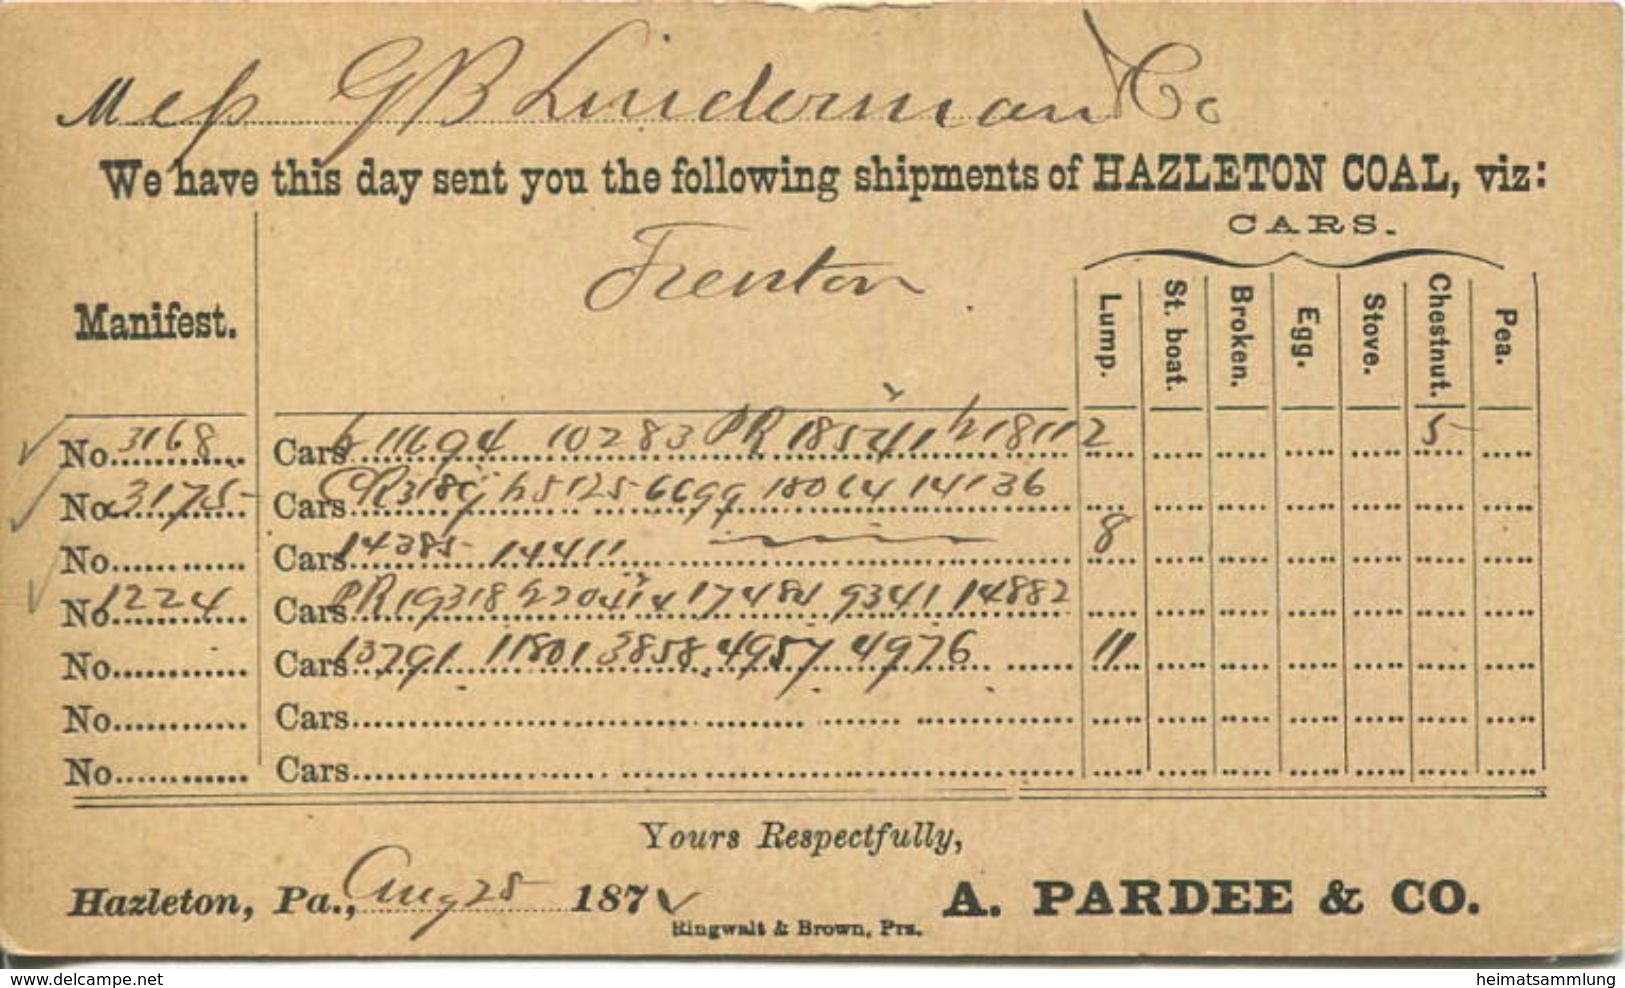 Mess GB Linderman & Co
We have this day sent you the following shipments of HAZLETON COAL, viz:
CARS.
Manifest.
Trenton
Lump. St. boat. Broken. Egg. Stove. Chestnut. Pea.
No. 3168 Cars 11694 10283 PR 18541 h 18112 5
No. 3175 Cars h 5125 6699 18064 14136
No. Cars 14385 14411 8
No. 1224 Cars PR 19318 17481 9341 14882
No. Cars 13791 11801 3858 4957 4976 11
No. Cars
No. Cars
Yours Respectfully,
Hazleton, Pa., Aug 25 187 A. PARDEE & CO.
Ringwalt & Brown, Prs.
www.delcampe.net heimatsammlung